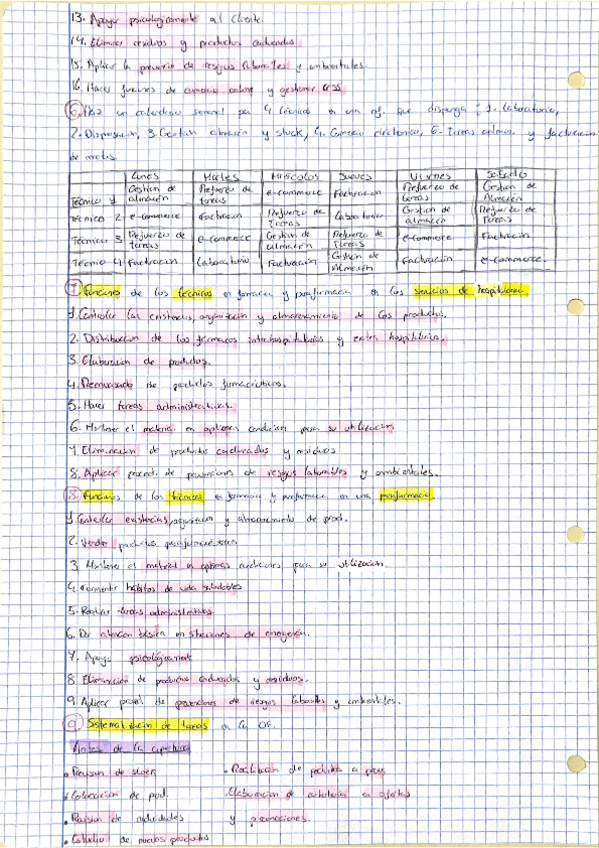 13. Apoyar psicológicamente al cliente.
14. Eliminar residuos y productos caducados
15. Aplicar la prevención de riesgos laborales y ambientales.
16. Hacer funciones de comercio online y gestionar RRSS
6. Haz un calendario semanal para 4 técnicos en una of. que disponga: 1. Laboratorio,
2. Dispensación, 3. Gestión almacén y stock, 4. Comercio electrónico, 5. Tareas admin. y facturación
de recetas
Lunes Martes Miércoles Jueves Viernes Sábado
Técnico 1 Gestión de almacén Refuerzo de tareas e-commerce Facturación Refuerzo de tareas Gestión de Almacén
Técnico 2 e-commerce Facturación Refuerzo de Tareas Laboratorio Gestión de almacén Refuerzo de Tareas
Técnico 3 Refuerzo de tareas e-commerce Gestión de almacén Refuerzo de Tareas e-commerce Facturación
Técnico 4 Facturación Laboratorio Facturación Gestión de Almacén Facturación e-commerce.
7. Funciones de los técnicos en farmacia y parafarmacia en los servicios de hospitalarios
1. Controlar las existencias, organización y almacenamiento de los productos.
2. Distribución de los fármacos intrahospitalarios y extra hospitalarios.
3. Elaboración de productos.
4. Reenvasado de productos farmacéuticos.
5. Hacer tareas administrativas.
6. Mantener el material en óptimas condiciones para su utilización
7. Eliminación de productos caducados y residuos
8. Aplicar proced. de prevenciones de riesgos laborales y ambientales.
8. Funciones de los técnicos en farmacia y parafarmacia en una parafarmacia.
1. Controlar existencias, organización y almacenamiento de prod.
2. Vender productos parafarmacéuticos
3. Mantener el material en óptimas condiciones para su utilización.
4. Fomentar hábitos de vida saludables
5. Realizar tareas administrativas
6. Dar atención básica en situaciones de emergencia.
7. Apoyo psicológicamente
8. Eliminación de productos caducados y residuos.
9. Aplicar proced. de prevenciones de riesgos laborales y ambientales.
9. Sistematización de tareas en la OF.
Antes de la apertura
• Revisión de stock • Realización de pedidos a
• Colocación de prod. • Elaboración de
• Revisión de caducidades y promociones.
• Estudio de nuevos productos